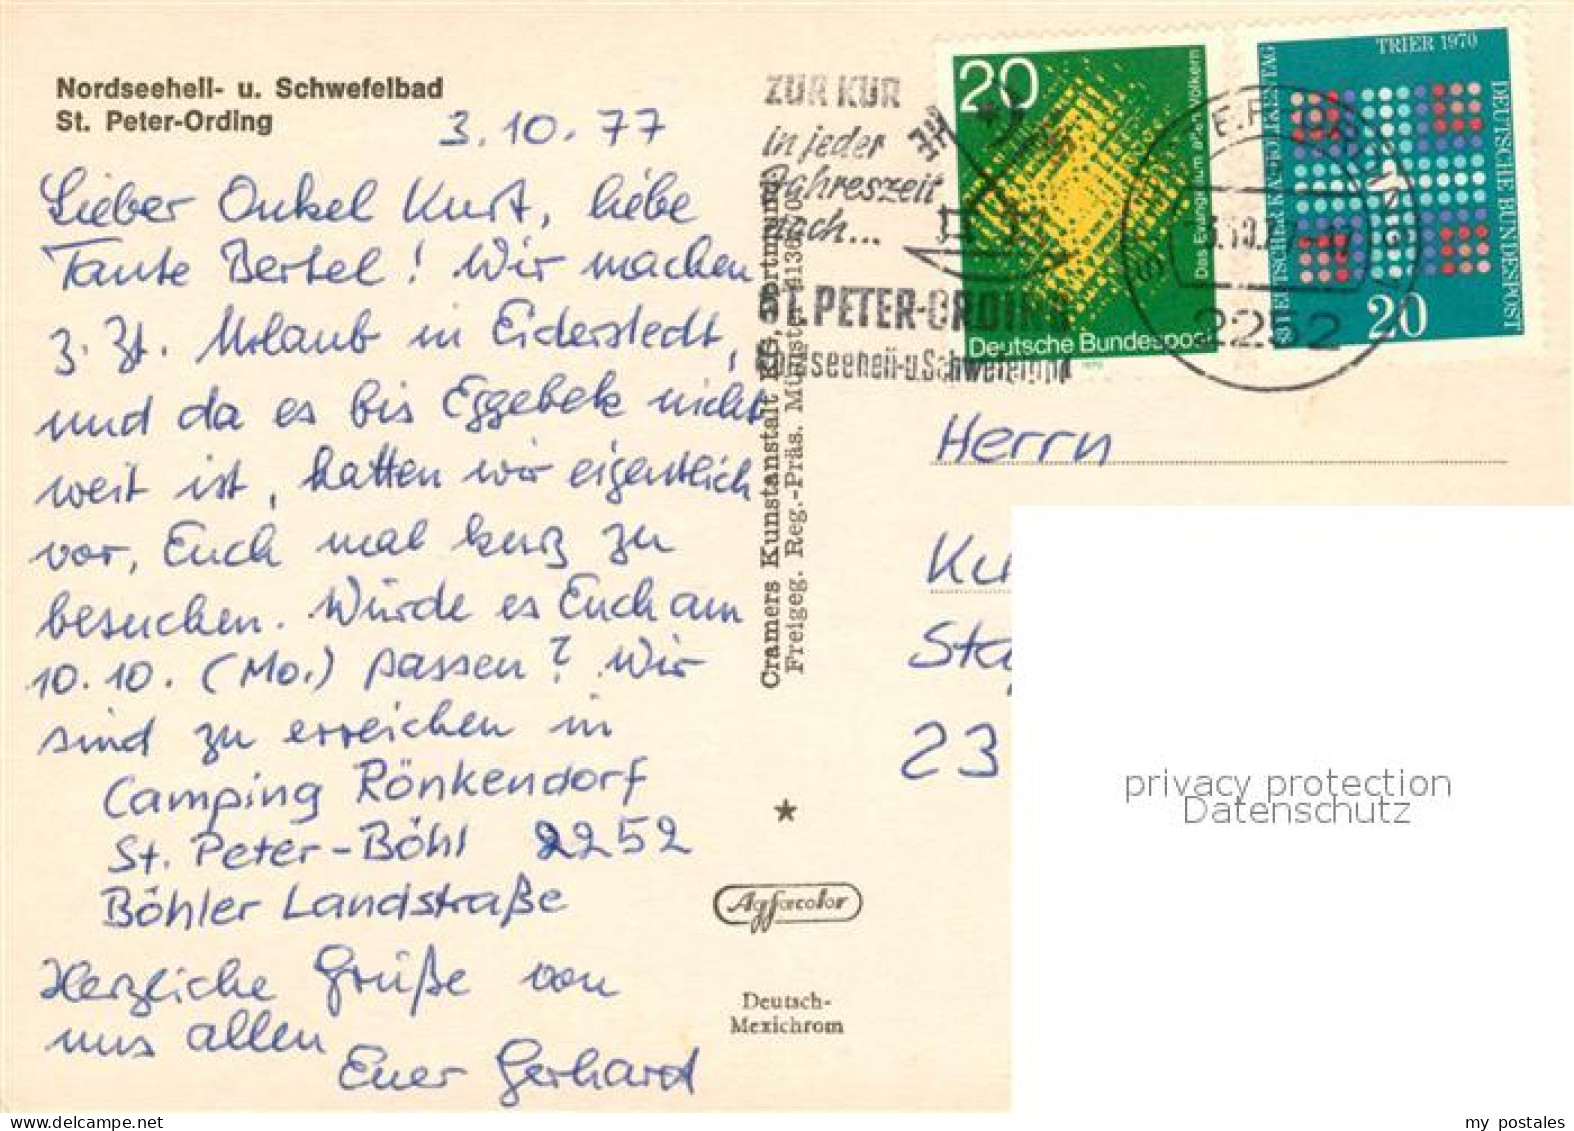 Nordseeheil- u. Schwefelbad
St. Peter-Ording
3.10.77
Lieber Onkel Kurt, liebe
Tante Bertel! Wir machen
z. Zt. Urlaub in Eiderstedt,
und da es bis Eggebek nicht
weit ist, hatten wir eigentlich
vor, Euch mal kurz zu
besuchen. Würde es Euch am
10.10. (Mo.) passen? Wir
sind zu erreichen in
Camping Rönkendorf
St. Peter-Böhl 2252
Böhler Landstraße
Herzliche Grüße von
uns allen
Euer Gerhard
Cramers Kunstanstalt KG, Dortmund
Freigeg. Reg.-Präs. Münster
Agfacolor
Deutsch-
Mexichrom
ZUR KUR
in jeder
Jahreszeit
nach...
ST. PETER-ORDING
Nordseeheil-u.Schwefelbad
20
Das Evangelium allen Völkern
Deutsche Bundespost
1970
TRIER 1970
83 DEUTSCHER KATHOLIKENTAG
DEUTSCHE BUNDESPOST
20
2252
Herrn
23
privacy protection
Datenschutz
my postales